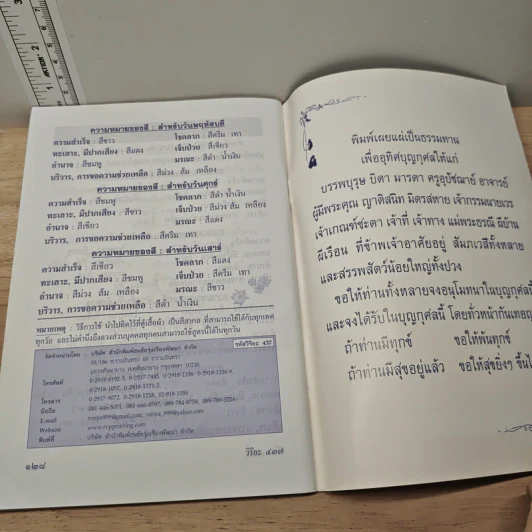 ความหมายของสี : สำหรับวันพฤหัสบดี
ความสำเร็จ : สีขาว โชคลาภ : สีครีม เทา
ทะเลาะ, มีปากเสียง : สีแดง เจ็บป่วย : สีเขียว
อำนาจ : สีชมพู มรณะ : สีดำ น้ำเงิน
บริวาร, การขอความช่วยเหลือ : สีม่วง ส้ม เหลือง
ความหมายของสี : สำหรับวันศุกร์
ความสำเร็จ : สีชมพู โชคลาภ : สีดำ น้ำเงิน
ทะเลาะ, มีปากเสียง : สีขาว เจ็บป่วย : สีม่วง ส้ม เหลือง
อำนาจ : สีเขียว มรณะ : สีแดง
บริวาร, การขอความช่วยเหลือ : สีครีม เทา
ความหมายของสี : สำหรับวันเสาร์
ความสำเร็จ : สีเขียว โชคลาภ : สีแดง
ทะเลาะ, มีปากเสียง : สีชมพู เจ็บป่วย : สีครีม เทา
อำนาจ : สีม่วง ส้ม เหลือง มรณะ : สีขาว
บริวาร, การขอความช่วยเหลือ : สีดำ น้ำเงิน
หมายเหตุ : วิธีการใช้ นำไปติดไว้ที่ตู้เสื้อผ้า เป็นสีสากล ที่สามารถใช้ได้กับทุกเพศ
ทุกวัย และไม่คำนึงถึงดวงส่วนบุคคลทุกคนสามารถใช้สูตรนี้ได้ในทุกวัน
รหัสวิริยะ 437
จัดจำหน่ายโดย : บริษัท สำนักพิมพ์เลี่ยงเชียงพัฒนา จำกัด
โทรศัพท์
โทรสาร
มือถือ
E-mail
Website : www.rvpprinting.com
พิมพ์ที่
๑๒๘
วิริยะ ๔๓๗
พิมพ์เผยแผ่เป็นธรรมทาน
เพื่ออุทิศบุญกุศลให้แก่
บรรพบุรุษ บิดา มารดา ครูอุปัชฌาย์ อาจารย์
ผู้มีพระคุณ ญาติสนิท มิตรสหาย เจ้ากรรมนายเวร
เจ้าเกณฑ์ชะตา เจ้าที่ เจ้าทาง แม่พระธรณี ผีบ้าน
ผีเรือน ที่ข้าพเจ้าอาศัยอยู่ สัมภเวสีทั้งหลาย
และสรรพสัตว์น้อยใหญ่ทั้งปวง
ขอให้ท่านทั้งหลายจงอนุโมทนาในบุญกุศลนี้
และจงได้รับในบุญกุศลนี้ โดยทั่วหน้ากันเทอญ
ถ้าท่านมีทุกข์ ขอให้พ้นทุกข์
ถ้าท่านมีสุขอยู่แล้ว ขอให้สุขยิ่งๆ ขึ้น